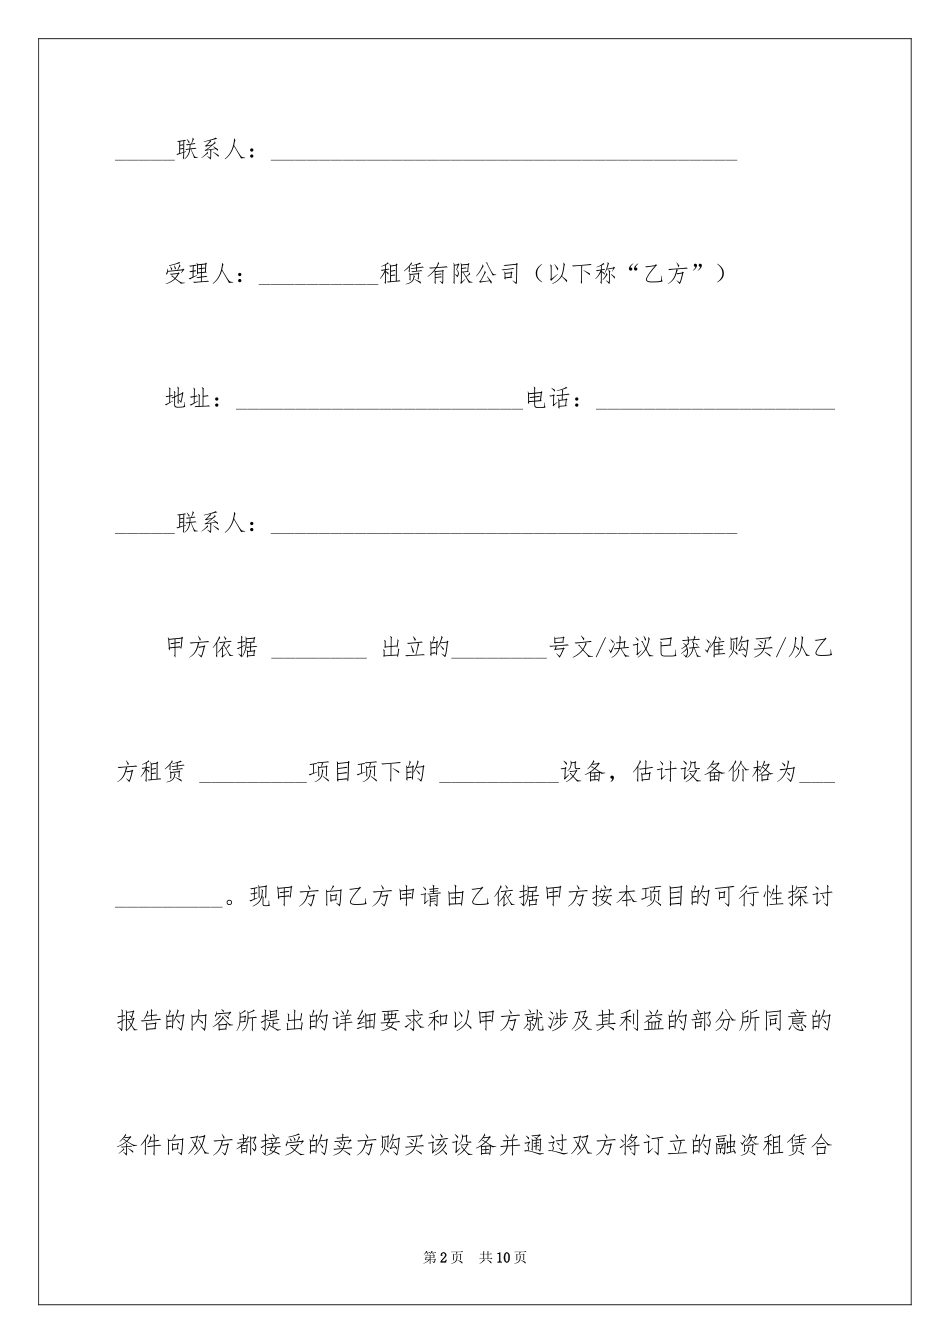 _____联系人：_______________________________________
受理人：__________租赁有限公司（以下称“乙方”）
地址：________________________电话：____________________
_____联系人：_______________________________________
甲方依据 ________ 出立的________号文/决议已获准购买/从乙
方租赁 _________项目项下的 __________设备，估计设备价格为___
_________。现甲方向乙方申请由乙依据甲方按本项目的可行性探讨
报告的内容所提出的详细要求和以甲方就涉及其利益的部分所同意的
条件向双方都接受的卖方购买该设备并通过双方将订立的融资租赁合
第 2 页 共 10 页